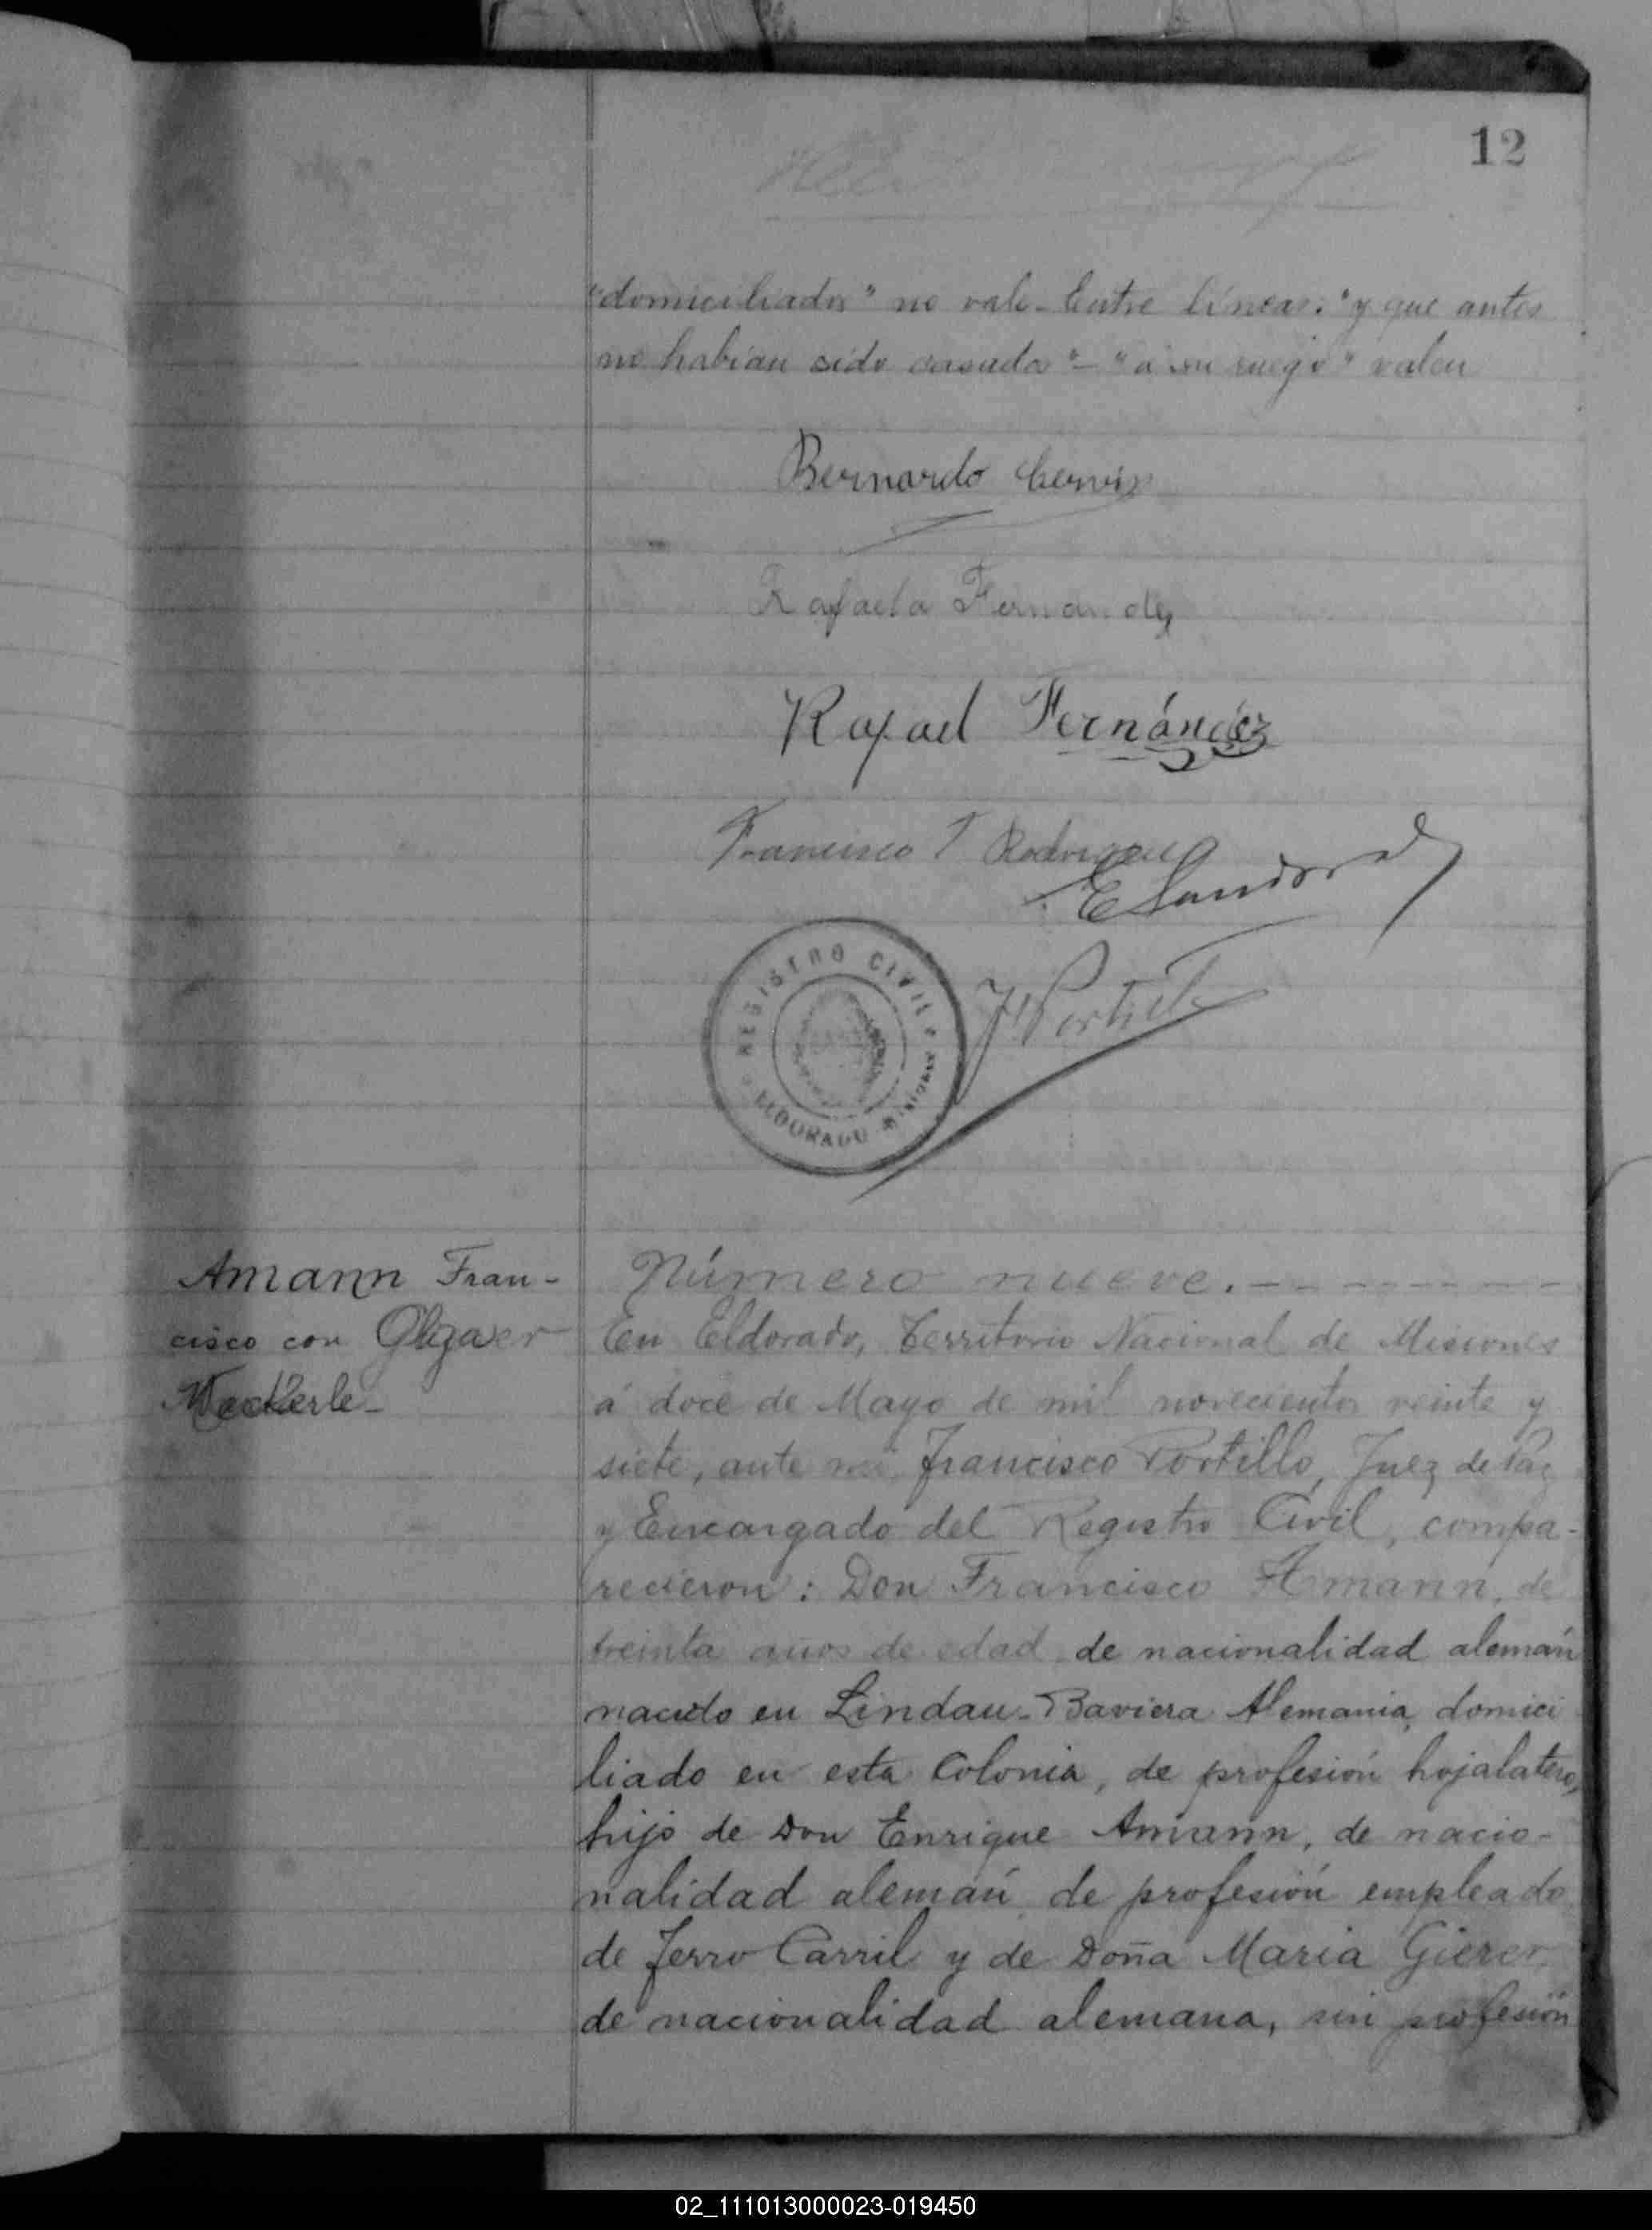 12
"domiciliados" no vale - Entre líneas: "y que antes
no habían sido casados" - "á su ruego" valen
Bernardo
Rafaela Fernandez
Rafael Fernández
Francisco T Rodriguez
E Sandoval
REGISTRO CIVIL
ELDORADO MISIONES
F Portillo
Amann Fran-
cisco con Olga
Weckerle-
Número nueve.
En Eldorado, Territorio Nacional de Misiones
á doce de Mayo de mil novecientos veinte y
siete, ante mí, Francisco Portillo, Juez de Paz
y Encargado del Registro Civil, compa-
recieron: Don Francisco Amann, de
treinta años de edad de nacionalidad alemán
nacido en Lindau-Baviera Alemania, domici
liado en esta Colonia, de profesión hojalatero,
hijo de Don Enrique Amann, de nacio-
nalidad alemán, de profesión empleado
de Ferro Carril y de Doña Maria Gierer
de nacionalidad alemana, sin profesión
02_111013000023-019450